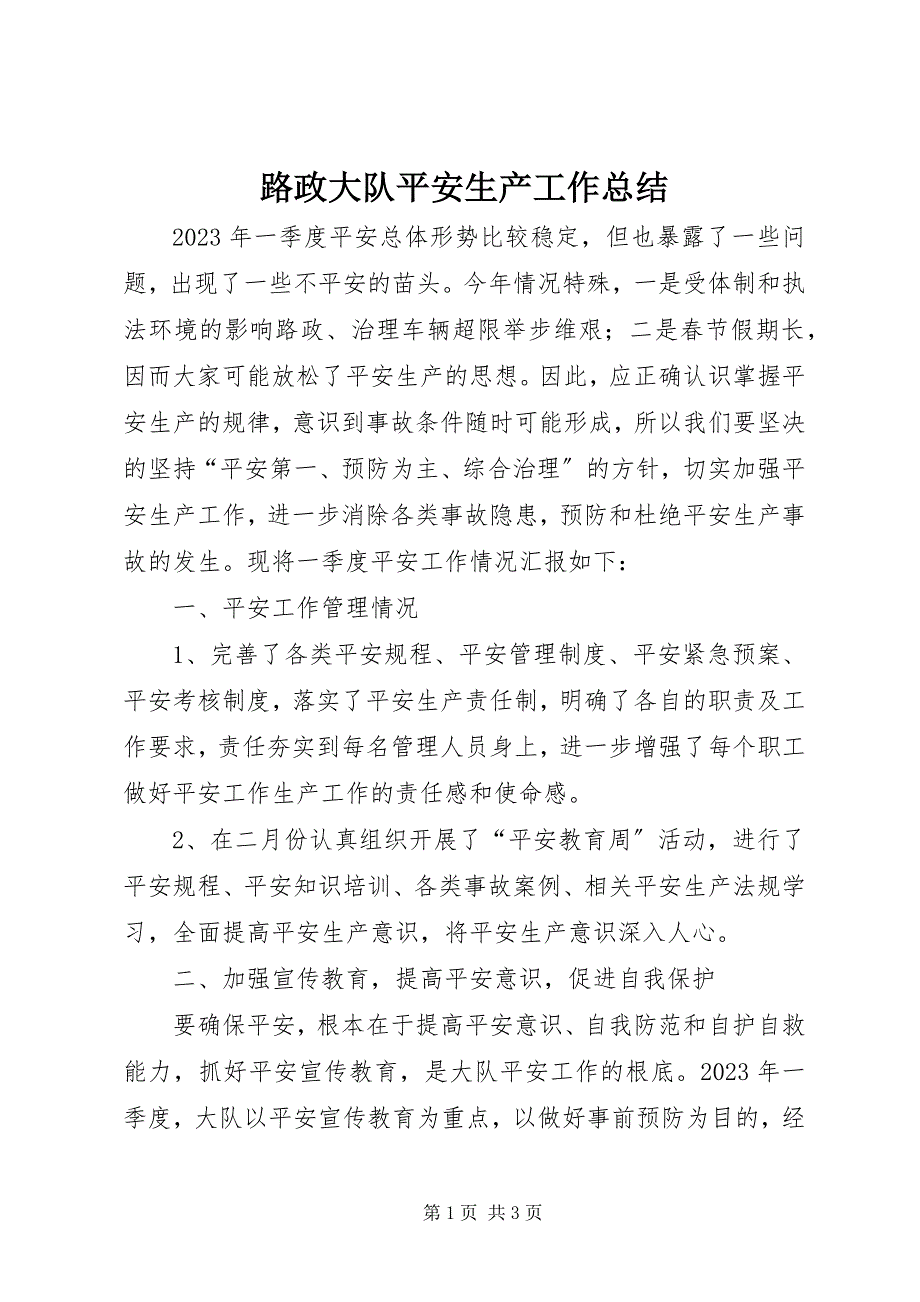 路政大队平安生产工作总结
2023 年一季度平安总体形势比较稳定，但也暴露了一些问
题，出现了一些不平安的苗头。今年情况特殊，一是受体制和执
法环境的影响路政、治理车辆超限举步维艰；二是春节假期长，
因而大家可能放松了平安生产的思想。因此，应正确认识掌握平
安生产的规律，意识到事故条件随时可能形成，所以我们要坚决
的坚持“平安第一、预防为主、综合治理〞的方针，切实加强平
安生产工作，进一步消除各类事故隐患，预防和杜绝平安生产事
故的发生。现将一季度平安工作情况汇报如下：
一、平安工作管理情况
1、完善了各类平安规程、平安管理制度、平安紧急预案、
平安考核制度，落实了平安生产责任制，明确了各自的职责及工
作要求，责任夯实到每名管理人员身上，进一步增强了每个职工
做好平安工作生产工作的责任感和使命感。
2、在二月份认真组织开展了“平安教育周〞活动，进行了
平安规程、平安知识培训、各类事故案例、相关平安生产法规学
习，全面提高平安生产意识，将平安生产意识深入人心。
二、加强宣传教育，提高平安意识，促进自我保护
要确保平安，根本在于提高平安意识、自我防范和自护自救
能力，抓好平安宣传教育，是大队平安工作的根底。2023 年一
季度，大队以平安宣传教育为重点，以做好事前预防为目的，经
第 1 页 共 3 页